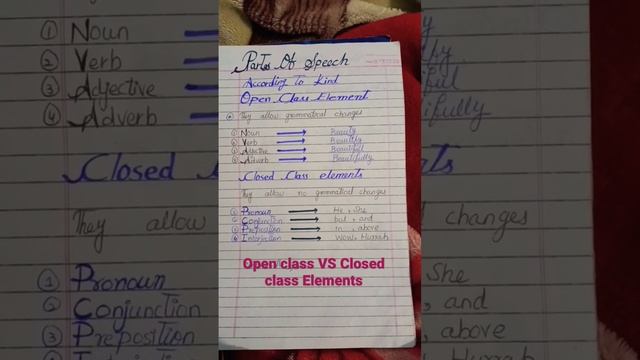 Parts Of Speech
According To Kind
Open Class Element
They allow grammatical changes
① Noun → Beauty
② Verb →
③ Adjective → Beautiful
④ Adverb → Beautifully
Closed Class elements
They allow no grammatical changes
① Pronoun → He, She
② Conjunction → but, and
③ Preposition → in, above
④ Interjection → Wow, Hurrah
Open class VS Closed
class Elements